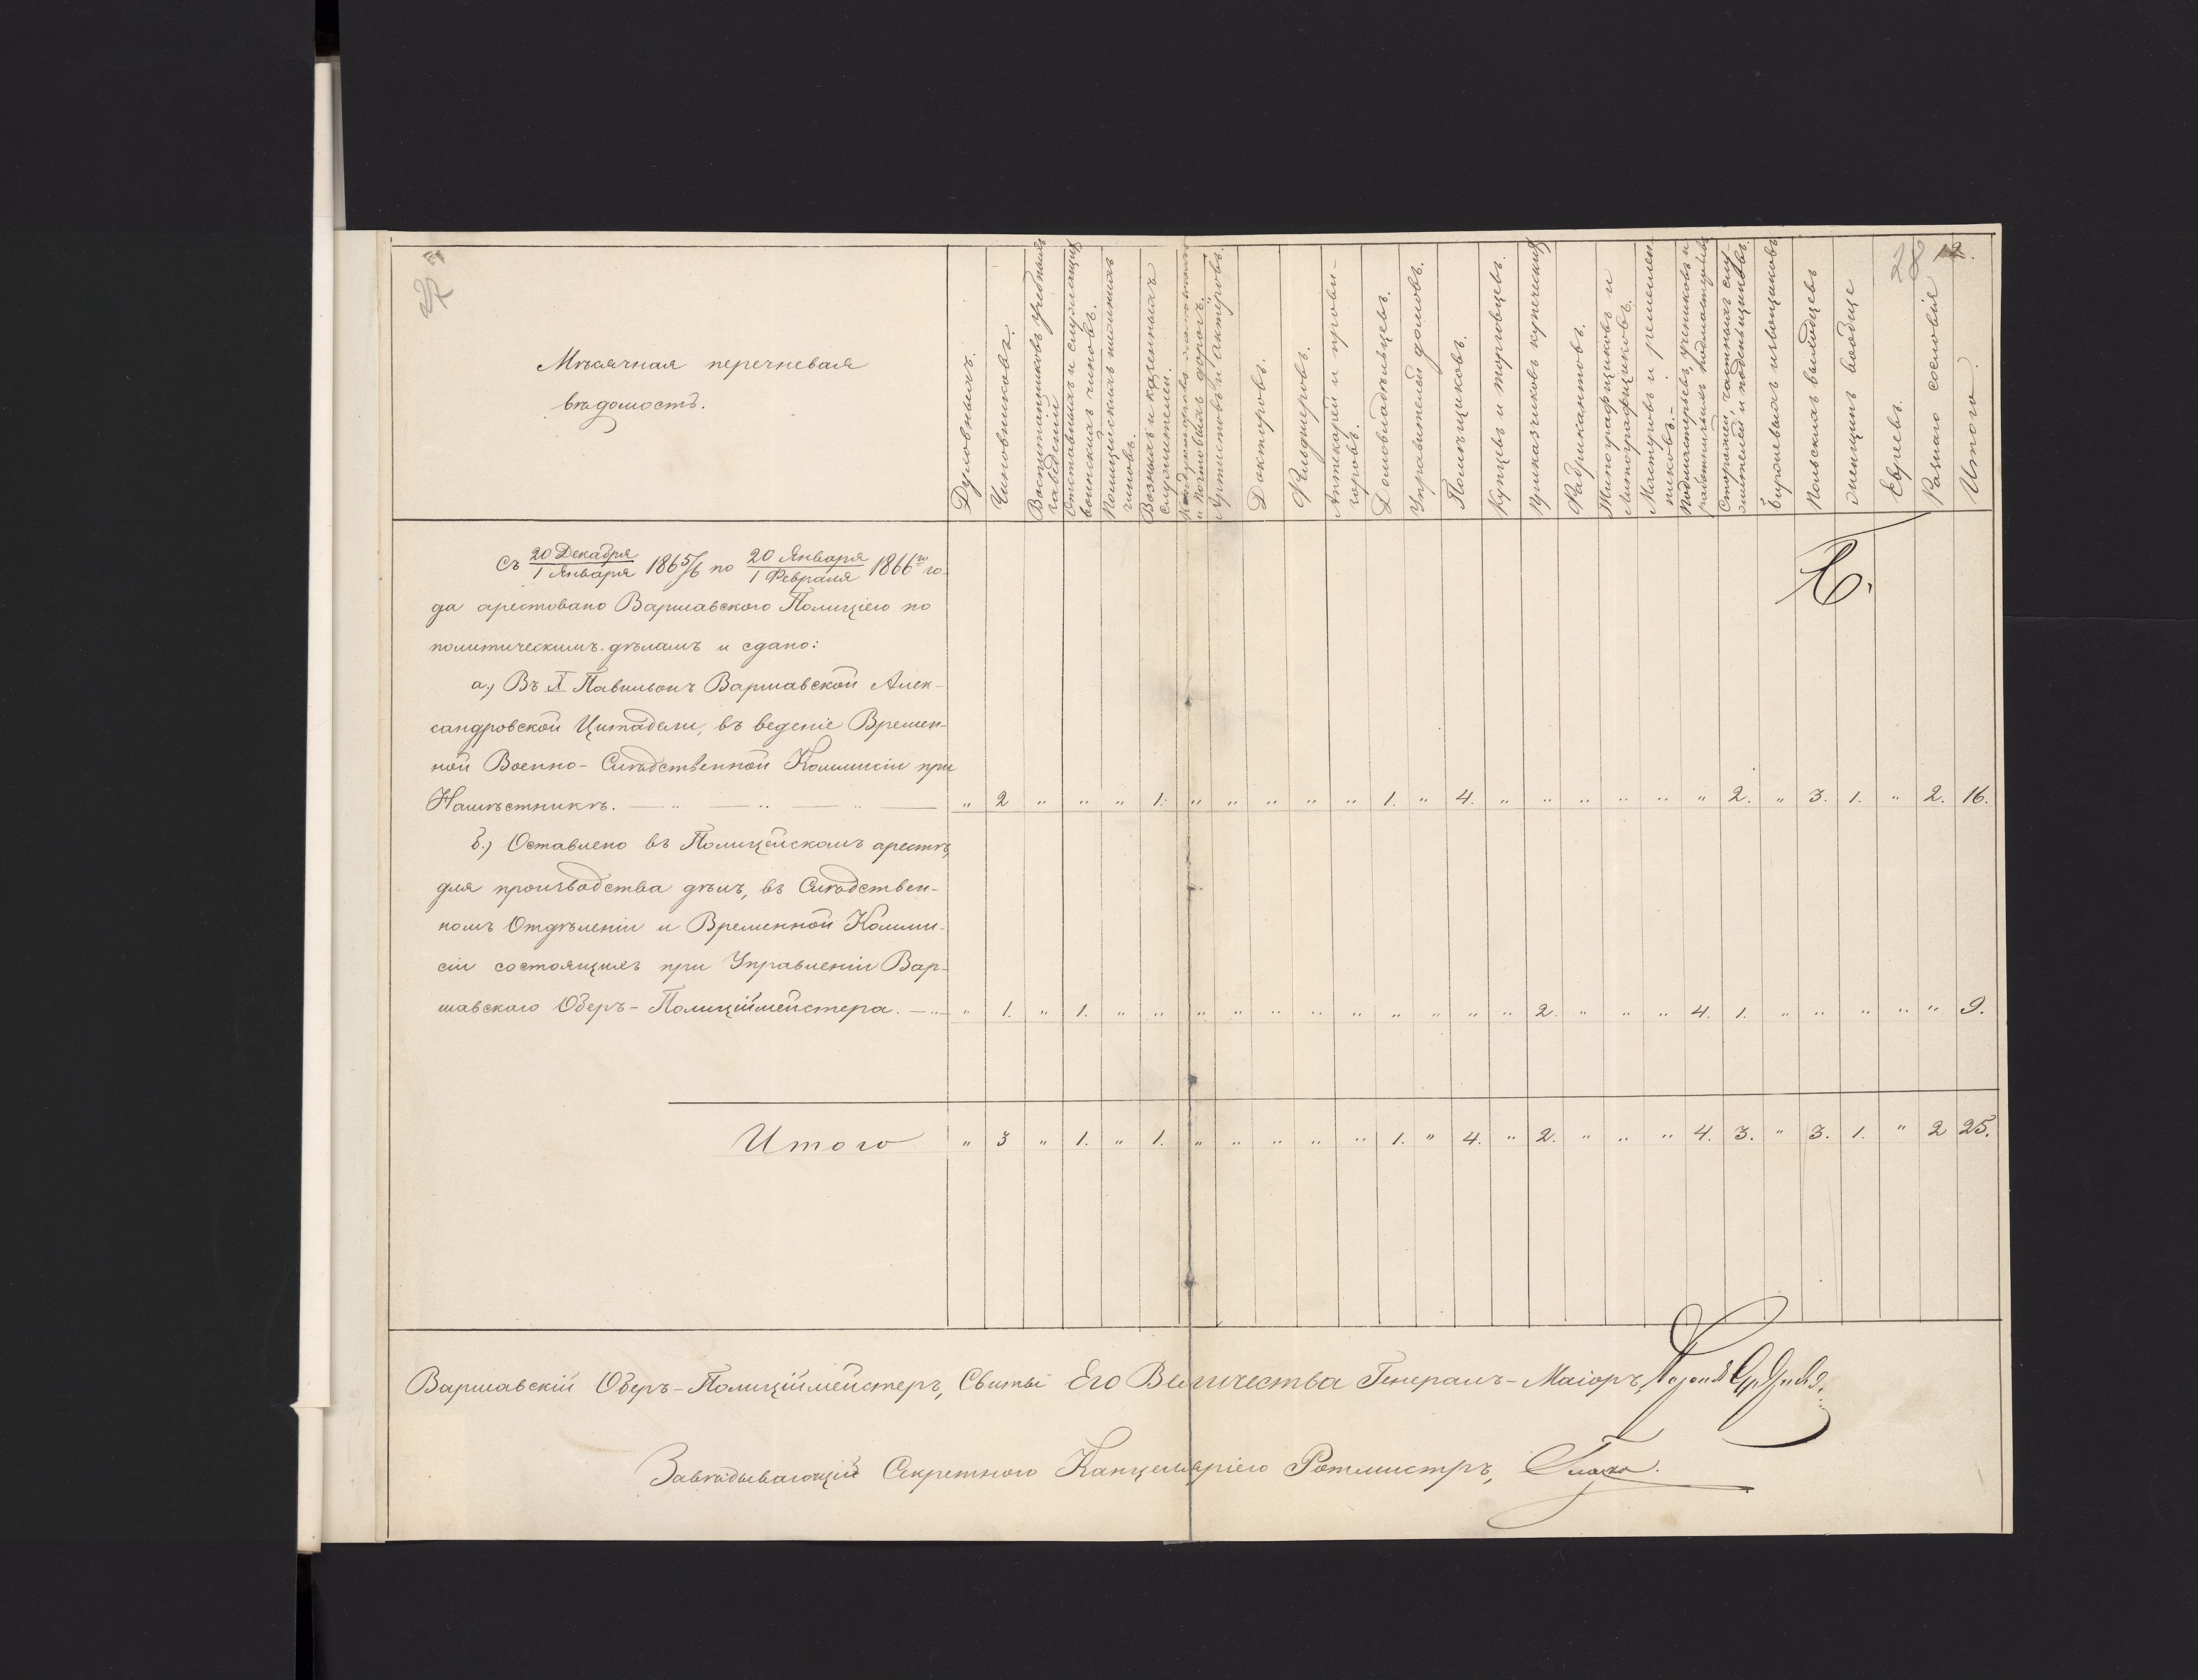 12.
Мѣсячная перечневая
вѣдомость.
Духовныхъ.
Чиновниковъ.
Воспитанниковъ учебныхъ
заведеній
Отставныхъ и служащихъ
воинскихъ чиновъ.
Полицейскихъ нижнихъ
чиновъ.
Возныхъ и казенныхъ
служителей.
Кондукторовъ
и почтовыхъ дорогъ.
Артистовъ и актёровъ.
Докторовъ.
Фельдшеровъ.
Аптекарей и прови-
зоровъ.
Домовладѣльцевъ.
Управителей домовъ.
Помѣщиковъ.
Купцевъ и торговцевъ.
Прикащиковъ купеческихъ
Фабрикантовъ.
Типографщиковъ и
Литографщиковъ.
Мастеровъ и ремеслен-
никовъ.-
Подмастерьевъ, учениковъ и
работничихъ
Сторожей, частныхъ слу-
жителей и поденьщиковъ.
Биржевыхъ извощиковъ
Польскихъ выходцевъ
Женщинъ вообще
Евреевъ.
Разнаго сословія
Итого.
Съ 20 Декабря / 1 Января 1865/6 по 20 Января / 1 Февраля 1866го го-
да арестовано Варшавскою Полиціею по
политическимъ дѣламъ и сдано:
а.) Въ X Павильонъ Варшавской Алек-
сандровской Цитадели, въ веденіе Времен-
ной Военно-Слѣдственной Коммисіи при
Намѣстникѣ. — " — " — " — " 2 " " " 1. " " " " " 1. " 4. " " " " " " 2. " 3. 1. " 2. 16.
б.) Оставлено въ Полицейскомъ арестѣ,
для производства дѣлъ, въ Слѣдствен-
номъ Отдѣленіи и Временной Коммис-
сіи состоящихъ при Управленіи Вар-
шавскаго Оберъ-Полиціймейстера. — " — " 1. " 1. " " " " " " " " " " " 2. " " " 4. 1. " " " " " 9.
Итого " 3 " 1. " 1. " " " " " 1. " 4. " 2. " " " 4. 3. " 3. 1. " 2 25.
Варшавскій Оберъ-Полиціймейстеръ, Свиты Его Величества Генералъ-Маіоръ,
Завѣдывающій Секретною Канцеляріею Ротмистръ,